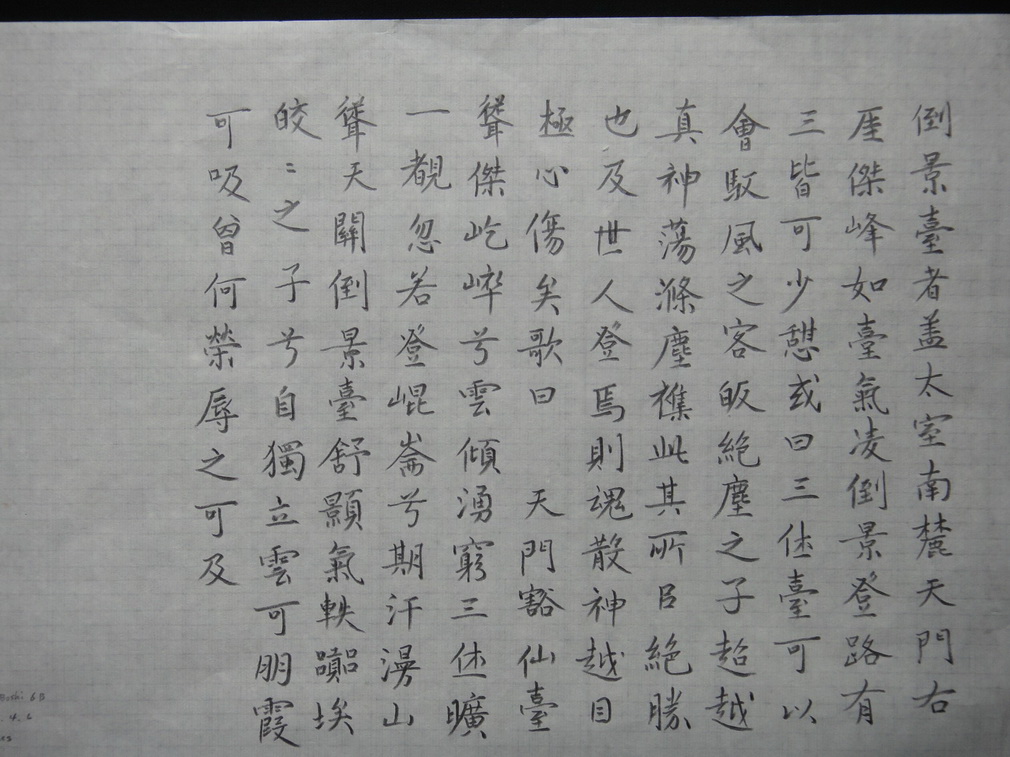 倒景臺者盖太室南麓天門右
厓傑峰如臺氣凌倒景登路有
三皆可少憇或曰三休臺可以
會馭風之客皈絶塵之子超越
真神蕩滌塵樵此其所㠯絶勝
也及世人登焉則魂散神越目
極心傷矣歌曰 天門豁仙臺
聳傑屹崒兮雲傾湧窮三休曠
一覩忽若登崐崙兮期汗漫山
聳天關倒景臺舒顥氣軼嚻埃
皎〻之子兮自獨立雲可朋霞
可吸曾何榮辱之可及